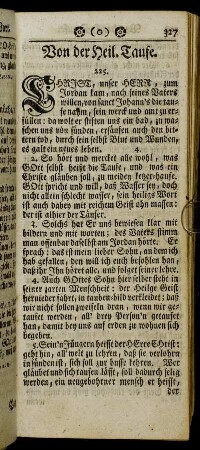 (0) 327
Von der Heil. Taufe.
225.
CHRIST, unser HERR, zum
Jordan kam, nach seines Vaters
willen, von sanct Johann's die tau-
fe nahm, sein werck und amt zu er-
füllen: da wolter stiften uns ein bad, zu wa-
schen uns von sünden, ersäufen auch den bit-
tern tod, durch sein selbst Blut und Wunden,
es galt ein neues leben.
2. So hört und mercket alle wohl, was
GOtt selbst heißt die Taufe, und was ein
Christe gläuben soll, zu meiden ketzerhaufe.
GOtt spricht und will, daß Wasser sey, doch
nicht allein schlecht wasser, sein heiligs Wort
ist auch dabey mit reichen Geist ohn massen:
der ist alhier der Täufer.
3. Solchs hat Er uns bewiesen klar mit
bildern und mit worten; des Vaters stimm
man offenbar daselbst am Jordan hörte. Er
sprach: das ist mein lieber Sohn, an dem ich
hab gefallen, den will ich euch befohlen han,
daß ihr Ihn höret alle, und folget seiner lehre.
4. Auch GOttes Sohn hier selber steht in
seiner zarten Menschheit; der Heilge Geist
hernieder fährt, in tauben-bild verkleidet; daß
wir nicht sollen zweifeln dran, wenn wir ge-
taufet werden, all drey Person'n getaufet
han, damit bey uns auf erden zu wohnen sich
begeben.
5. Sein'n Jüngern heißt der HErre Christ:
geht hin, all welt zu lehren, daß sie verlohrn
in sünden ist, sich soll zur busse kehren. Wer
gläubet und sich taufen läßt, soll dadurch selig
werden, ein neugebohrner mensch er heißt,
der